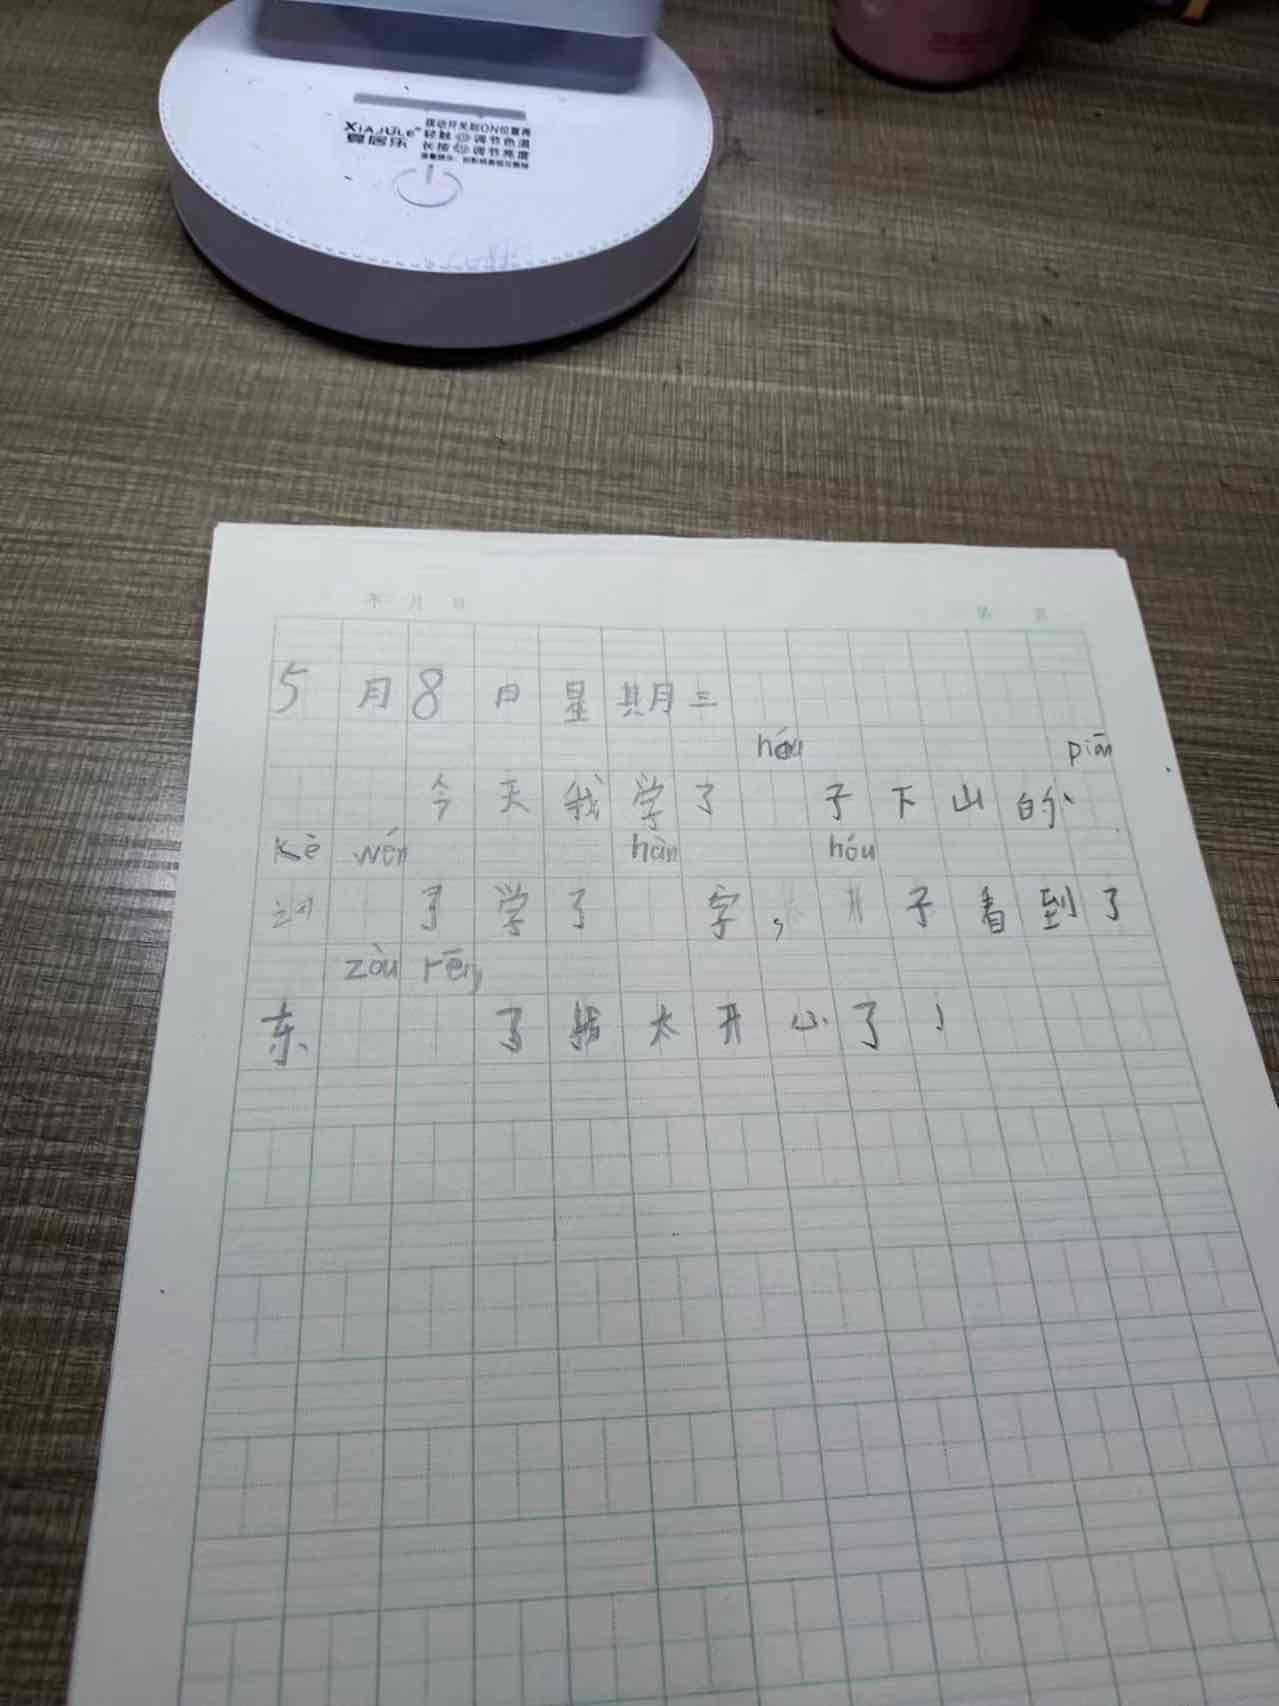 XIAJULE®
夏居乐
拨动开关到ON位置再
轻触 调节色温
长按 调节亮度
年 月 日
第 页
5月8日星期三
hóu piān
今天我学了 子下山的
kè wén hàn hóu
了学了 字, 子看到了
zòu rén
东 了 太开心了!